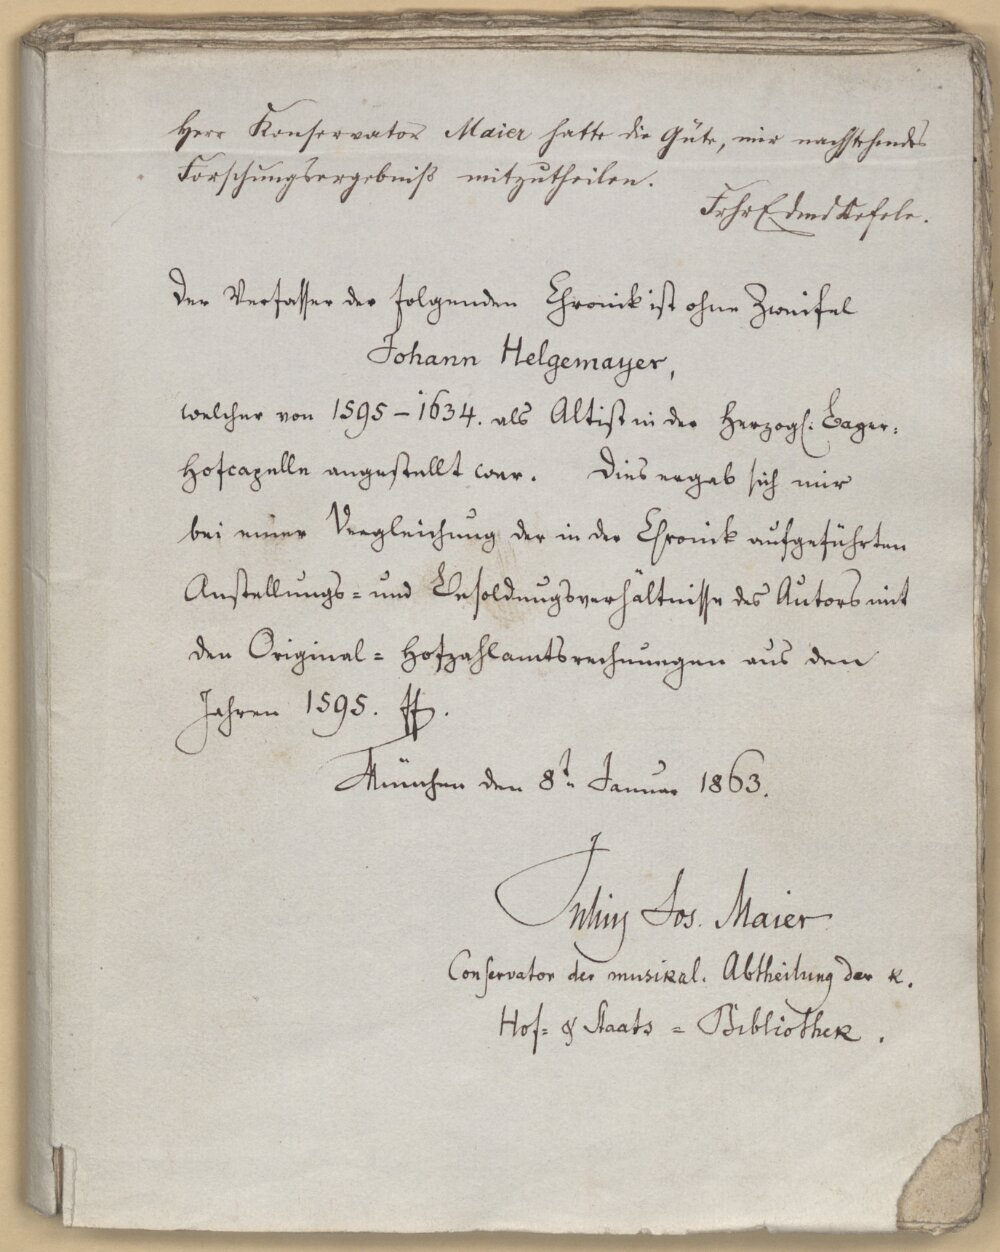 Herr Konservator Maier hatte die Güte, mir nachstehendes
Forschungsergebniß mitzutheilen.
Frhr Edmd Oefele.
Der Verfasser der folgenden Chronik ist ohne Zweifel
Johann Helgemayer,
welcher von 1595 – 1634. als Altist in der Herzogl. Bayer:
Hofcapelle angestellt war. Dies ergab sich mir
bei einer Vergleichung der in der Chronik aufgeführten
Anstellungs= und Besoldungsverhältnisse des Autors mit
den Original = Hofzahlamtsrechnungen aus den
Jahren 1595. ff.
München den 8t. Januar 1863.
Julius Jos. Maier
Conservator der musikal. Abtheilung der k.
Hof= & Staats = Bibliothek.